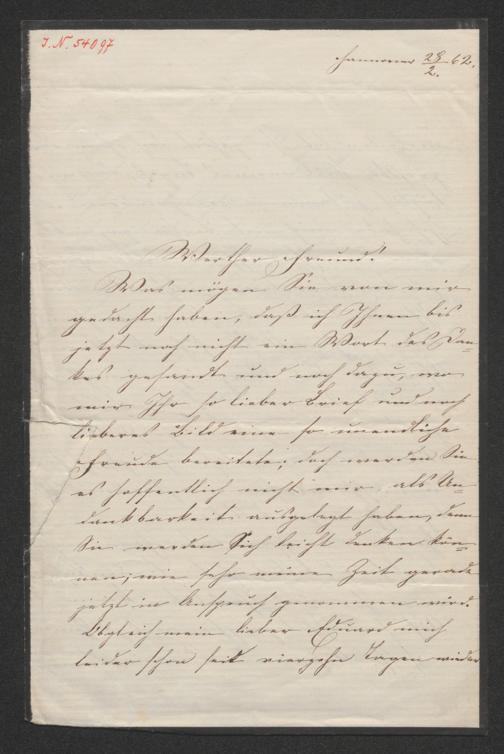 J.N. 54097
Hannover 28/2. 62.
Werther Freund!
Was mögen Sie von mir
gedacht haben, daß ich Ihnen bis
jetzt noch nicht ein Wort des Dan=
kes gesandt und noch dazu, wo
mir Ihr so lieber Brief und noch
lieberes Bild eine so unendliche
Freude bereitete; doch werden Sie
es hoffentlich nicht mir als Un=
dankbarkeit ausgelegt haben, denn
Sie werden Sich leicht denken kön=
nen, wie sehr meine Zeit gerade
jetzt in Anspruch genommen wird.
Obgleich mein lieber Eduard mich
leider schon seit vierzehn Tagen wieder